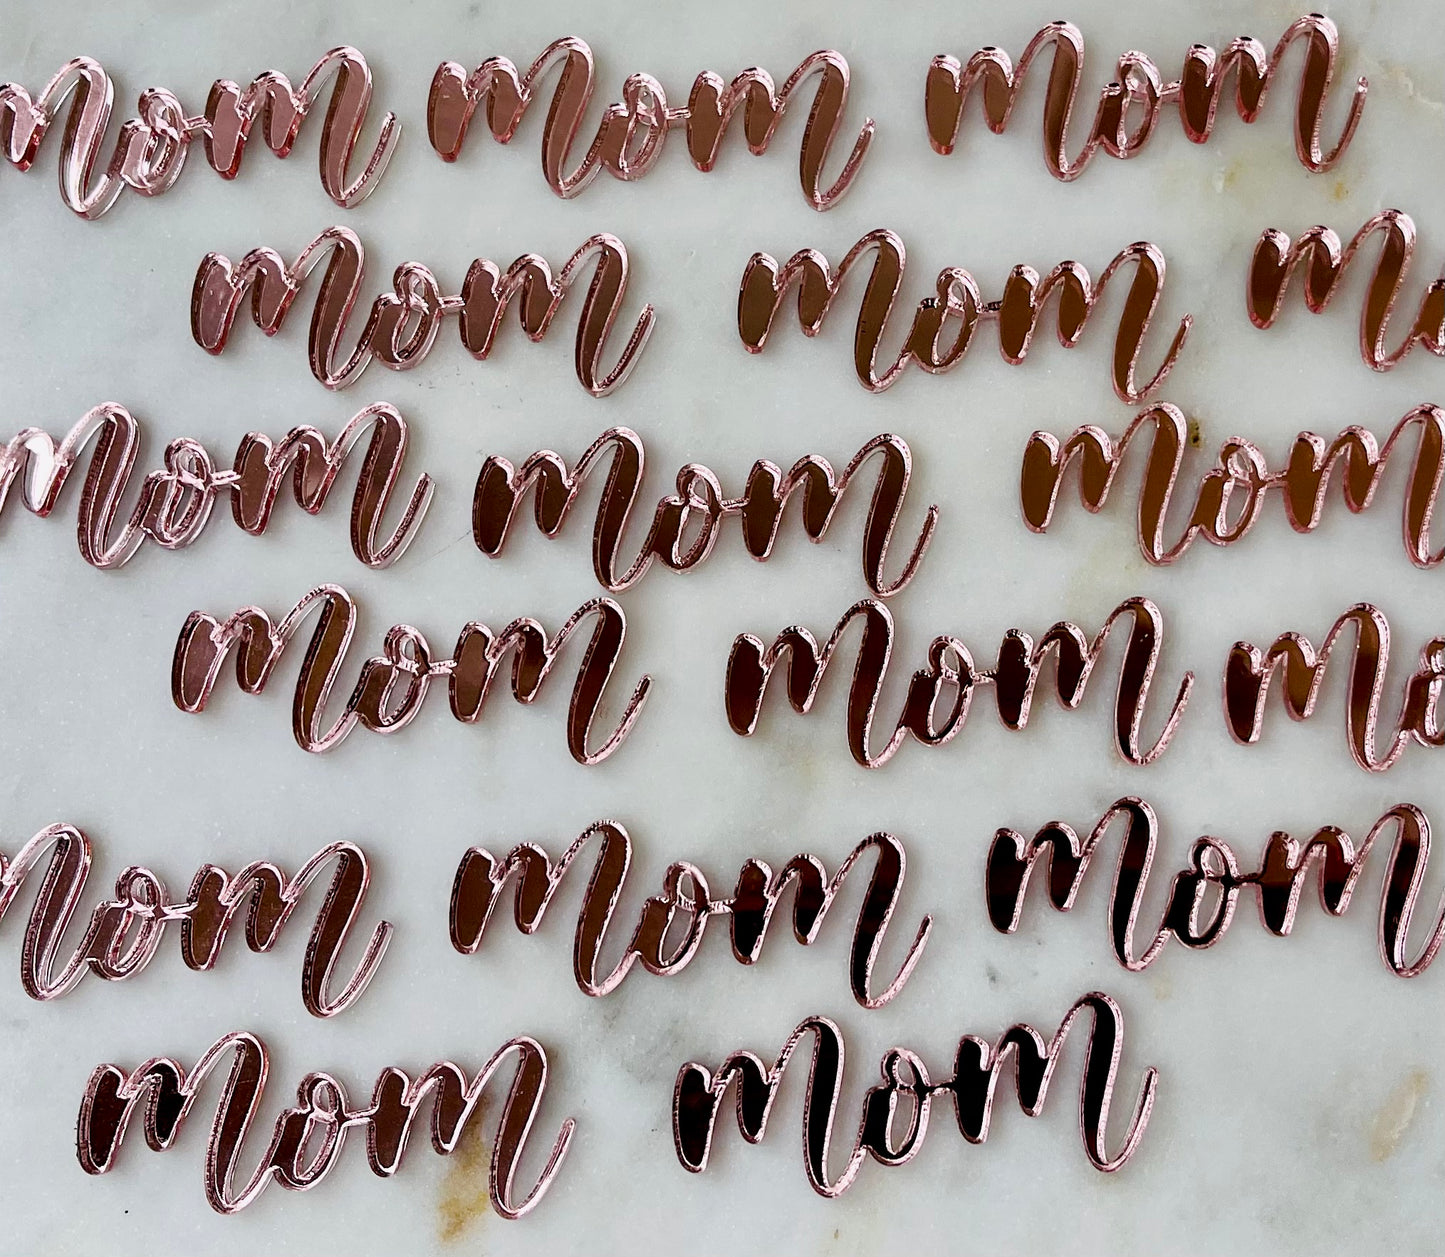 mom mom mom
mom mom mo
mom mom mom
mom mom mo
mom mom mom
mom mom